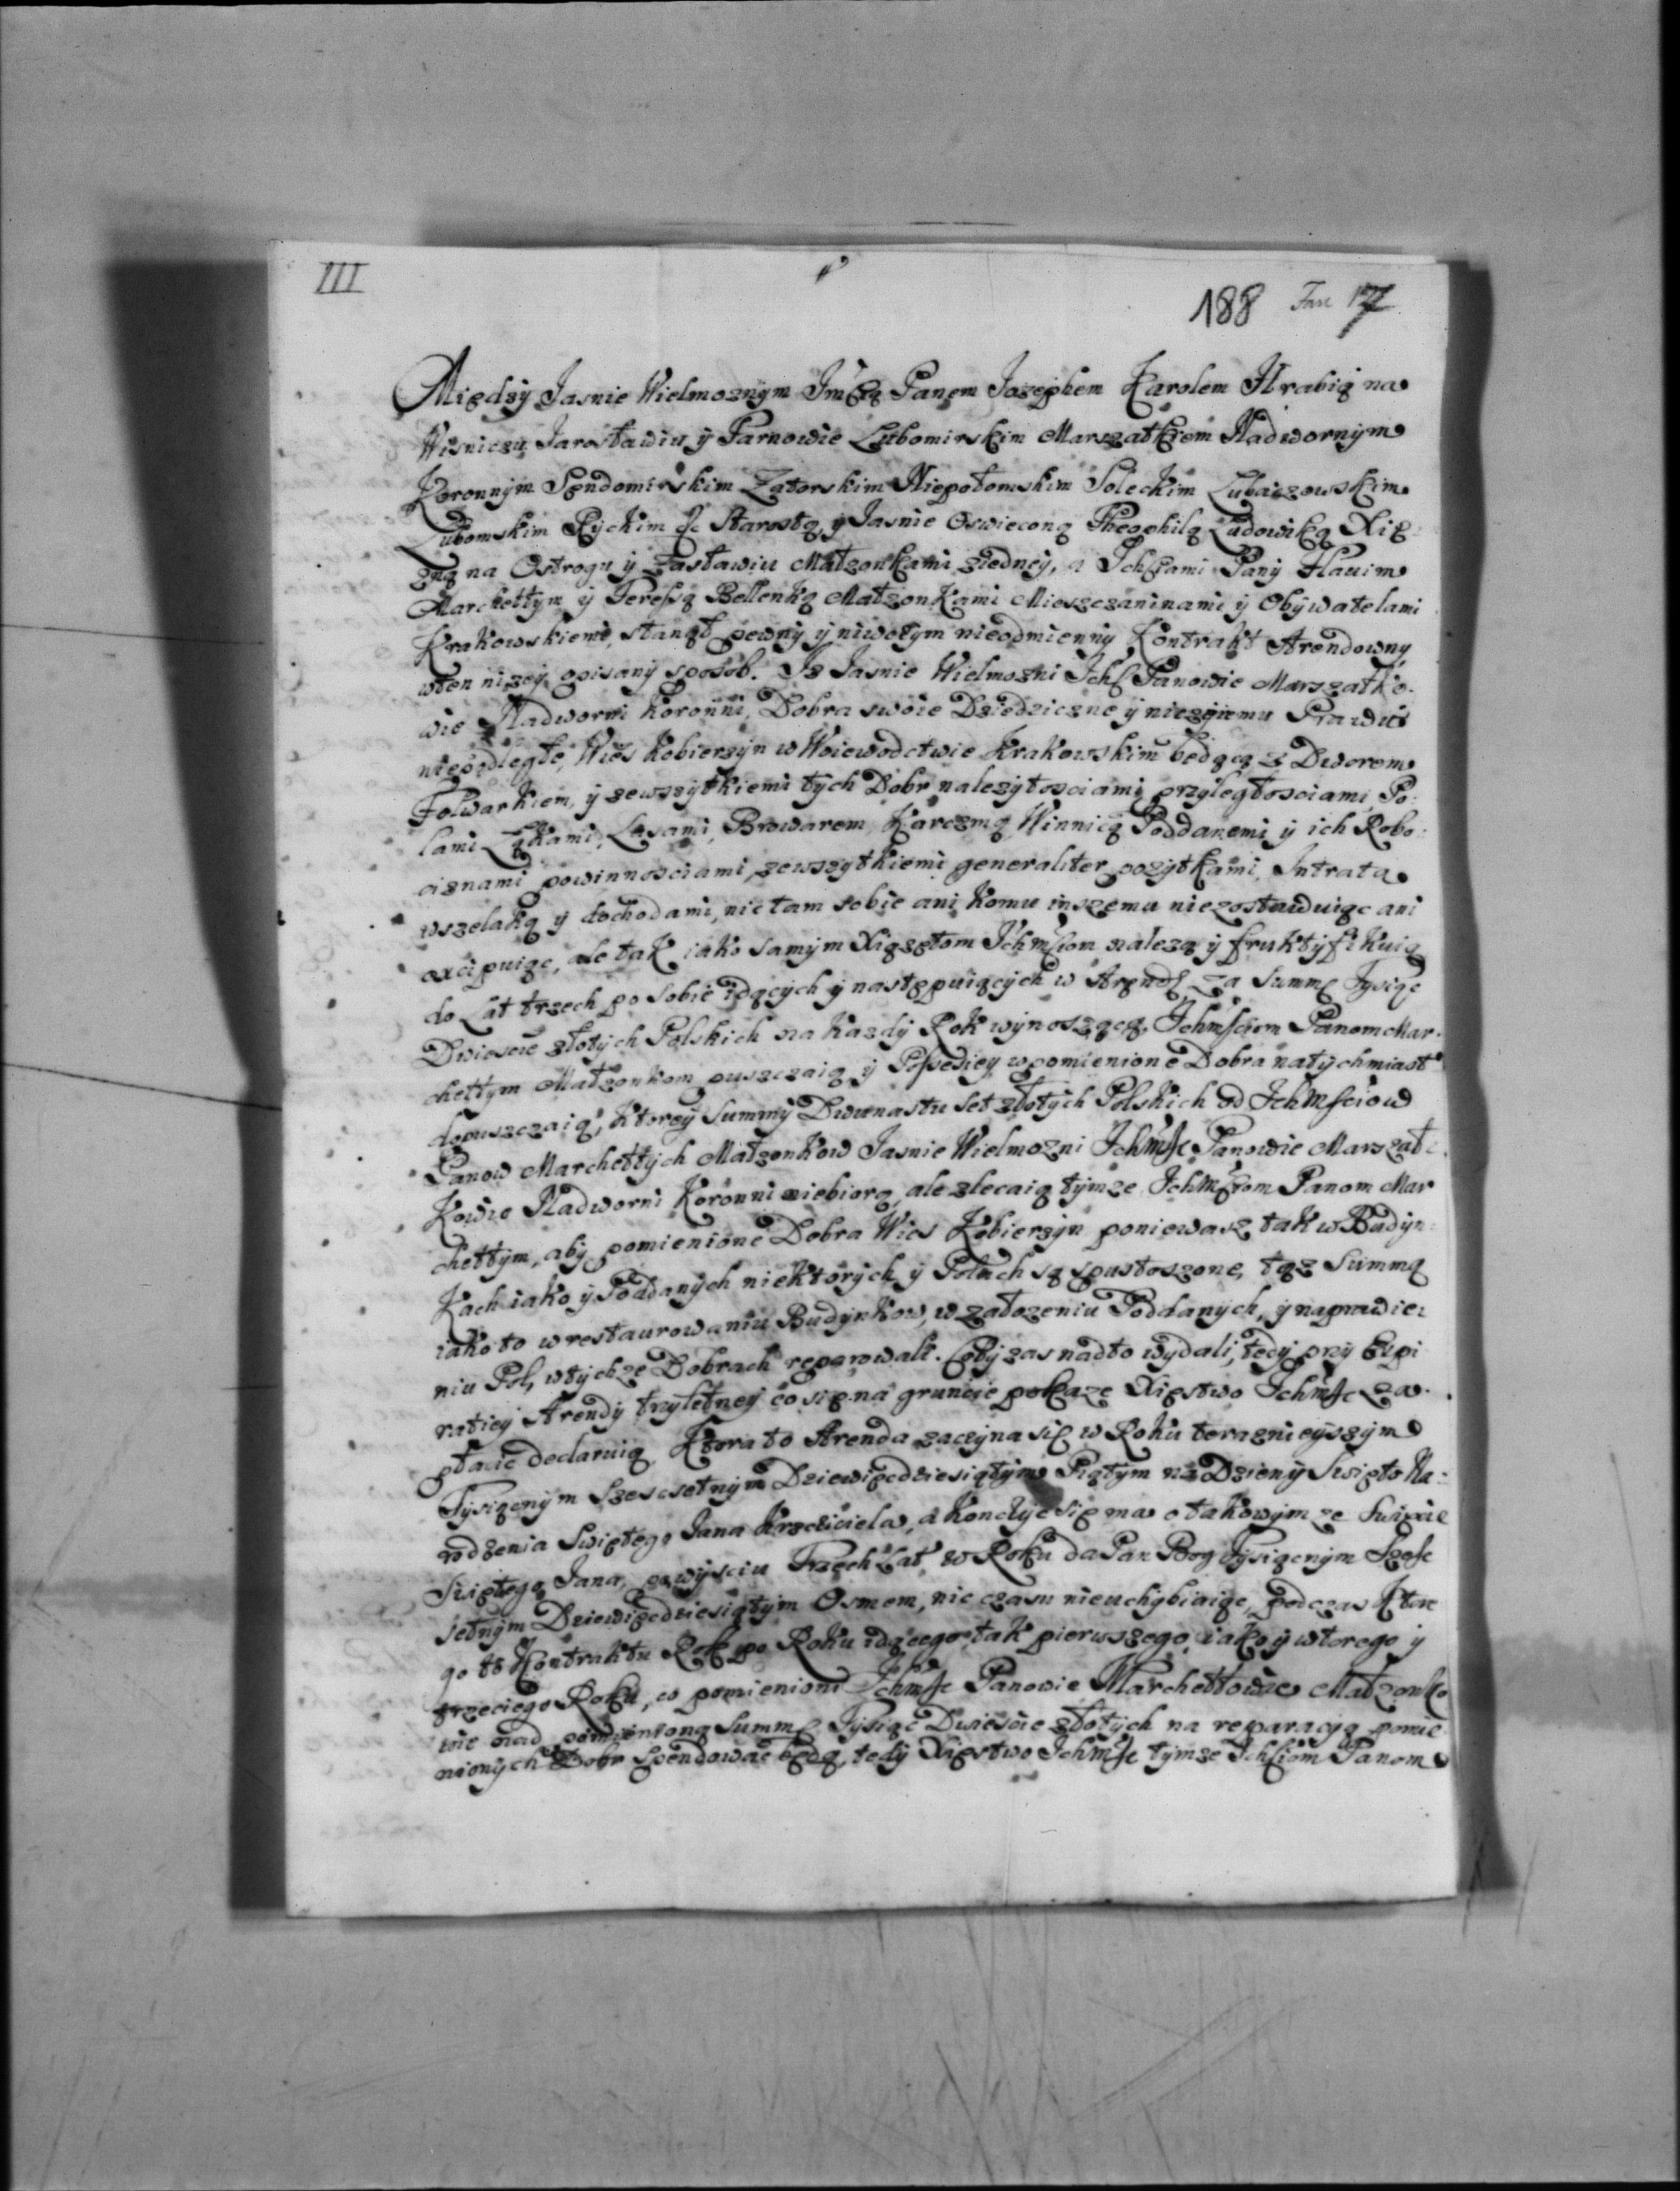 III
188 Fasc 17
Między Jasnie Wielmoznym Jmścią Panem Jozephem Karolem Hrabią na
Wisniczu, Jarosławiu ÿ Tarnowie Lubomirskim Marszałkiem Nadwornym
Koronnÿm Sendomirskim Zatorskim Niepołomskim Soleckim Lubaczowskim
Lubomskim Ryckim &c Starostą, ÿ Jasnie Oswieconą Theophilą Ludowiką Xię
zną na Ostrogu ÿ Zasławiu Małzonkami ziedneÿ, a Ichściami Panÿ Flauim
Marchettym ÿ Teressą Bellenką Małzonkami Mieszczaninami ÿ Obÿwatelami
Krakowskiemi, stanął pewnÿ ÿ niwczym nieodmiennÿ Kontrakt Arendowny,
wten nizeÿ opisanÿ sposob. Iz Jasnie Wielmozni Ichść Panowie Marszałko-
wie Nadworni Koronni, Dobra swoie Dziedziczne ÿ niczÿiemu Prawu
niepodległe, Wies Kobierzÿn w Woiewodctwie Krakowskim będącą z Dworem
Folwarkiem, ÿ zewszÿtkiemi tÿch Dobr nalezÿtosciami, przÿległosciami, Po-
lami Łąkami, Lasami, Browarem, Karczmą, Winnicą Poddanemi ÿ ich Robo-
ciznami powinnosciami, zewszÿtkiemi generaliter pozÿtkami, Intratą
wszelaką ÿ dochodami, nic tam sobie ani komu inszemu niezostawuiąc ani
excipuiąc, ale tak iako samÿm Xiązętom Ichmściom nalezą ÿ fruktÿfikuią
do Lat trzech po sobie idącÿch ÿ następuiącÿch w Arendę za Summę Tysiąc
Dwiescie złotÿch Polskich na kazdÿ Rok wÿnoszącą, Ichmściom Panom Mar-
chettym Małzonkom puszczaią, ÿ Possessiey wpomienione Dobra natÿchmiast
dopuszczaią, Ktoreÿ Summÿ Dwunastu set złotÿch Polskich od Ichmsciow
Panow Marchettÿch Małzonkow Jasnie Wielmozni Ichmść Panowie Marszał-
kowie Nadworni Koronni niebiorą, ale zlecaią tÿmze Ichmściom Panom Mar
chettym, abÿ pomienione Dobra Wies Kobierzÿn poniewasz tak w Budÿn-
kach iako ÿ Poddanÿch niektorÿch, ÿ Polach są spustoszone, tąz Summą
iako to w restaurowaniu Budÿnkow, w załozeniu Poddanÿch, ÿ naprawie-
niu Pol, wtÿchze Dobrach reparowali. Cobÿ zas nadto wydali, tedÿ przÿ Expi
ratieÿ Arendÿ trzÿletneÿ co się na gruncie pokaze Xięstwo Ichmść za-
płacic declaruią. Ktora to Arenda zaczÿna się w Roku teraznieÿszÿm
Tysiącnÿm Szescsetnÿm Dziewięcdziesiątÿm Piątÿm na Dzienÿ Swięto Na-
rodzenia Swiętego Jana Krzciciela, a Konczÿc się ma o takowÿmze Swięcie
Swiętego Jana, po wÿsciu Trzech Lat w Roku da Pan Bog Tysiącnÿm Szesc
setnÿm Dziewięcdziesiątÿm Osmem, nic czasu nieuchÿbiaiąc, podczas Ktore
go to Kontraktu Rok po Roku idącego tak pierwszego, iako ÿ wtorego ÿ
trzeciego Roku, co pomienioni Ichmść Panowie Marchettowie Małzonko
wie nad pomienioną Summę Tÿsiąc Dwiescie złotÿch na reparacÿą pomie
nionÿch Dobr spendowac będą, tedÿ Xięstwo Ichmść tÿmze Ichściom Panom